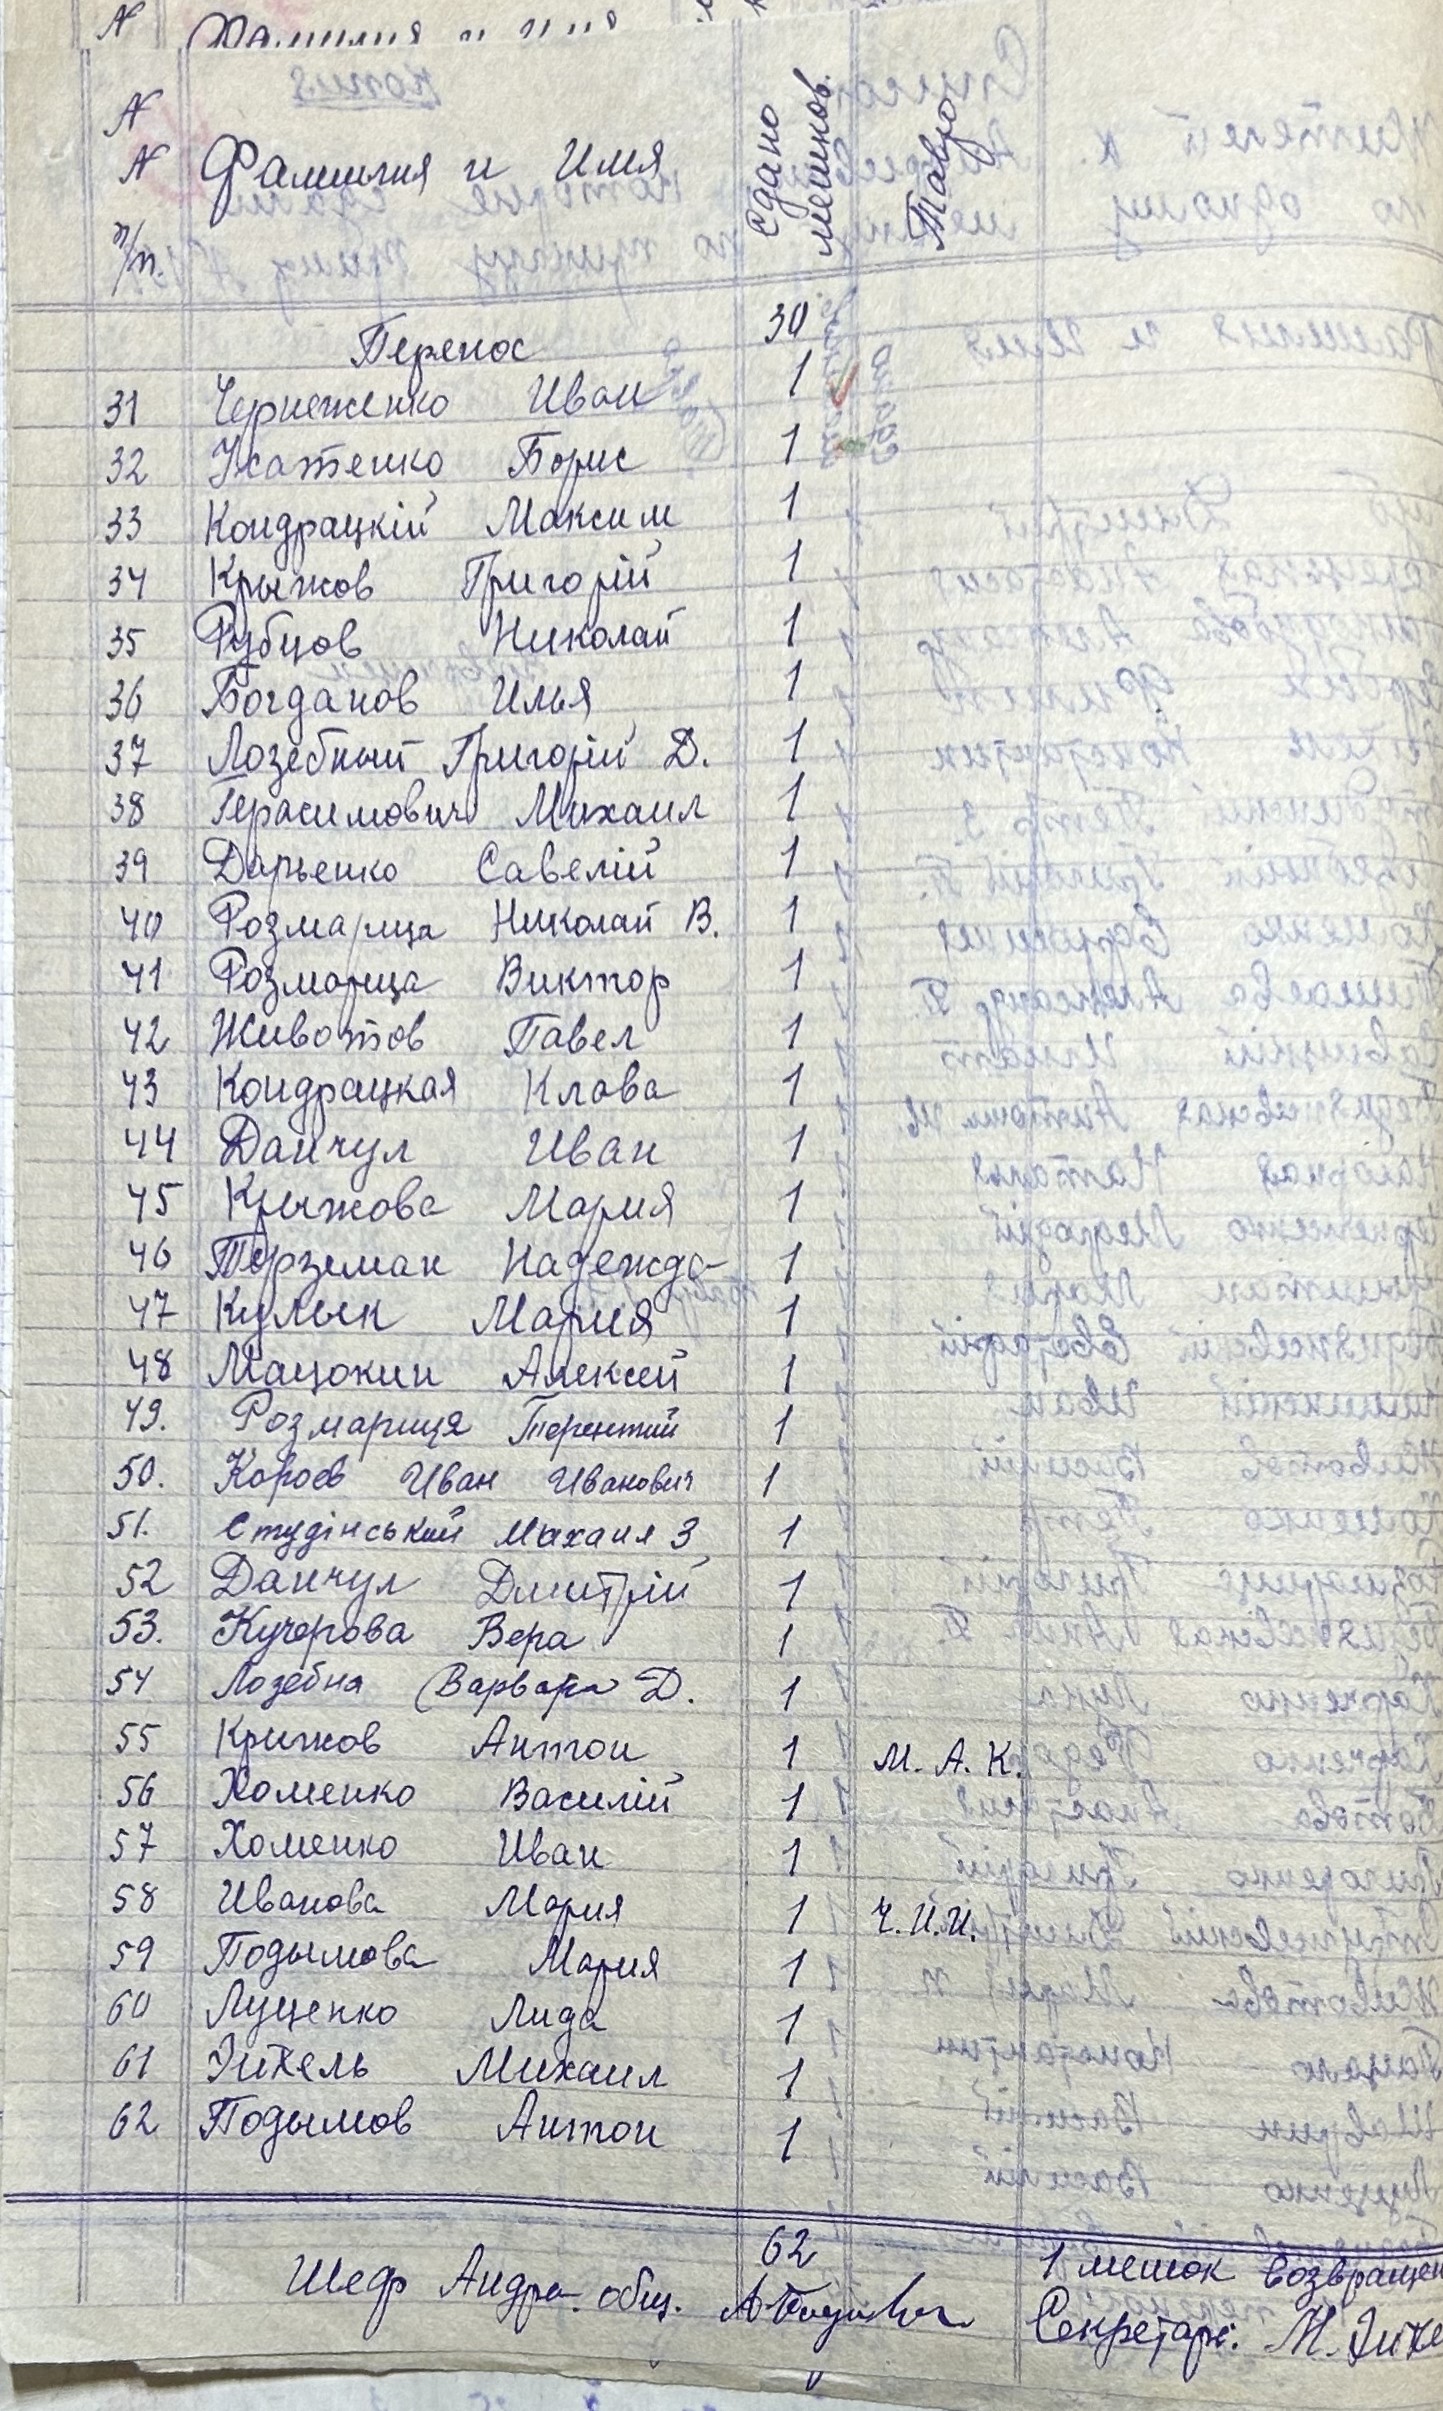 N Фамилия и имя
N
N Фамилия и Имя Сдано мешков. Тавро
п/п.
Перенос 30
31 Чернеженко Иван 1
32 Усатенко Борис 1
33 Кондрацкій Максим 1
34 Крыжов Григорій 1
35 Рубцов Николай 1
36 Богданов Илья 1
37 Лозебный Григорій Д. 1
38 Герасимович Михаил 1
39 Дарьенко Савелій 1
40 Розмарица Николай В. 1
41 Розмарица Виктор 1
42 Животов Павел 1
43 Кондрацкая Клава 1
44 Данчул Иван 1
45 Крыжова Мария 1
46 Терземан Надежда 1
47 Кулык Мария 1
48 Мацокин Алексей 1
49. Розмарица Терентий 1
50. Короев Иван Иванович 1
51. Студінський Михаил З 1
52 Данчул Дмитрій 1
53. Кучерова Вера 1
54 Лозебня Варвара Д. 1
55 Крижов Антон 1 М. А. К.
56 Хоменко Василій 1
57 Хоменко Иван 1
58 Иванова Мария 1 Ч. И. И.
59 Подымова Мария 1
60 Луценко Лида 1
61 Энкель Михаил 1
62 Подымов Антон 1
62
Шеф Андр. общ. 1 мешок возвращен
Секретарь: М.